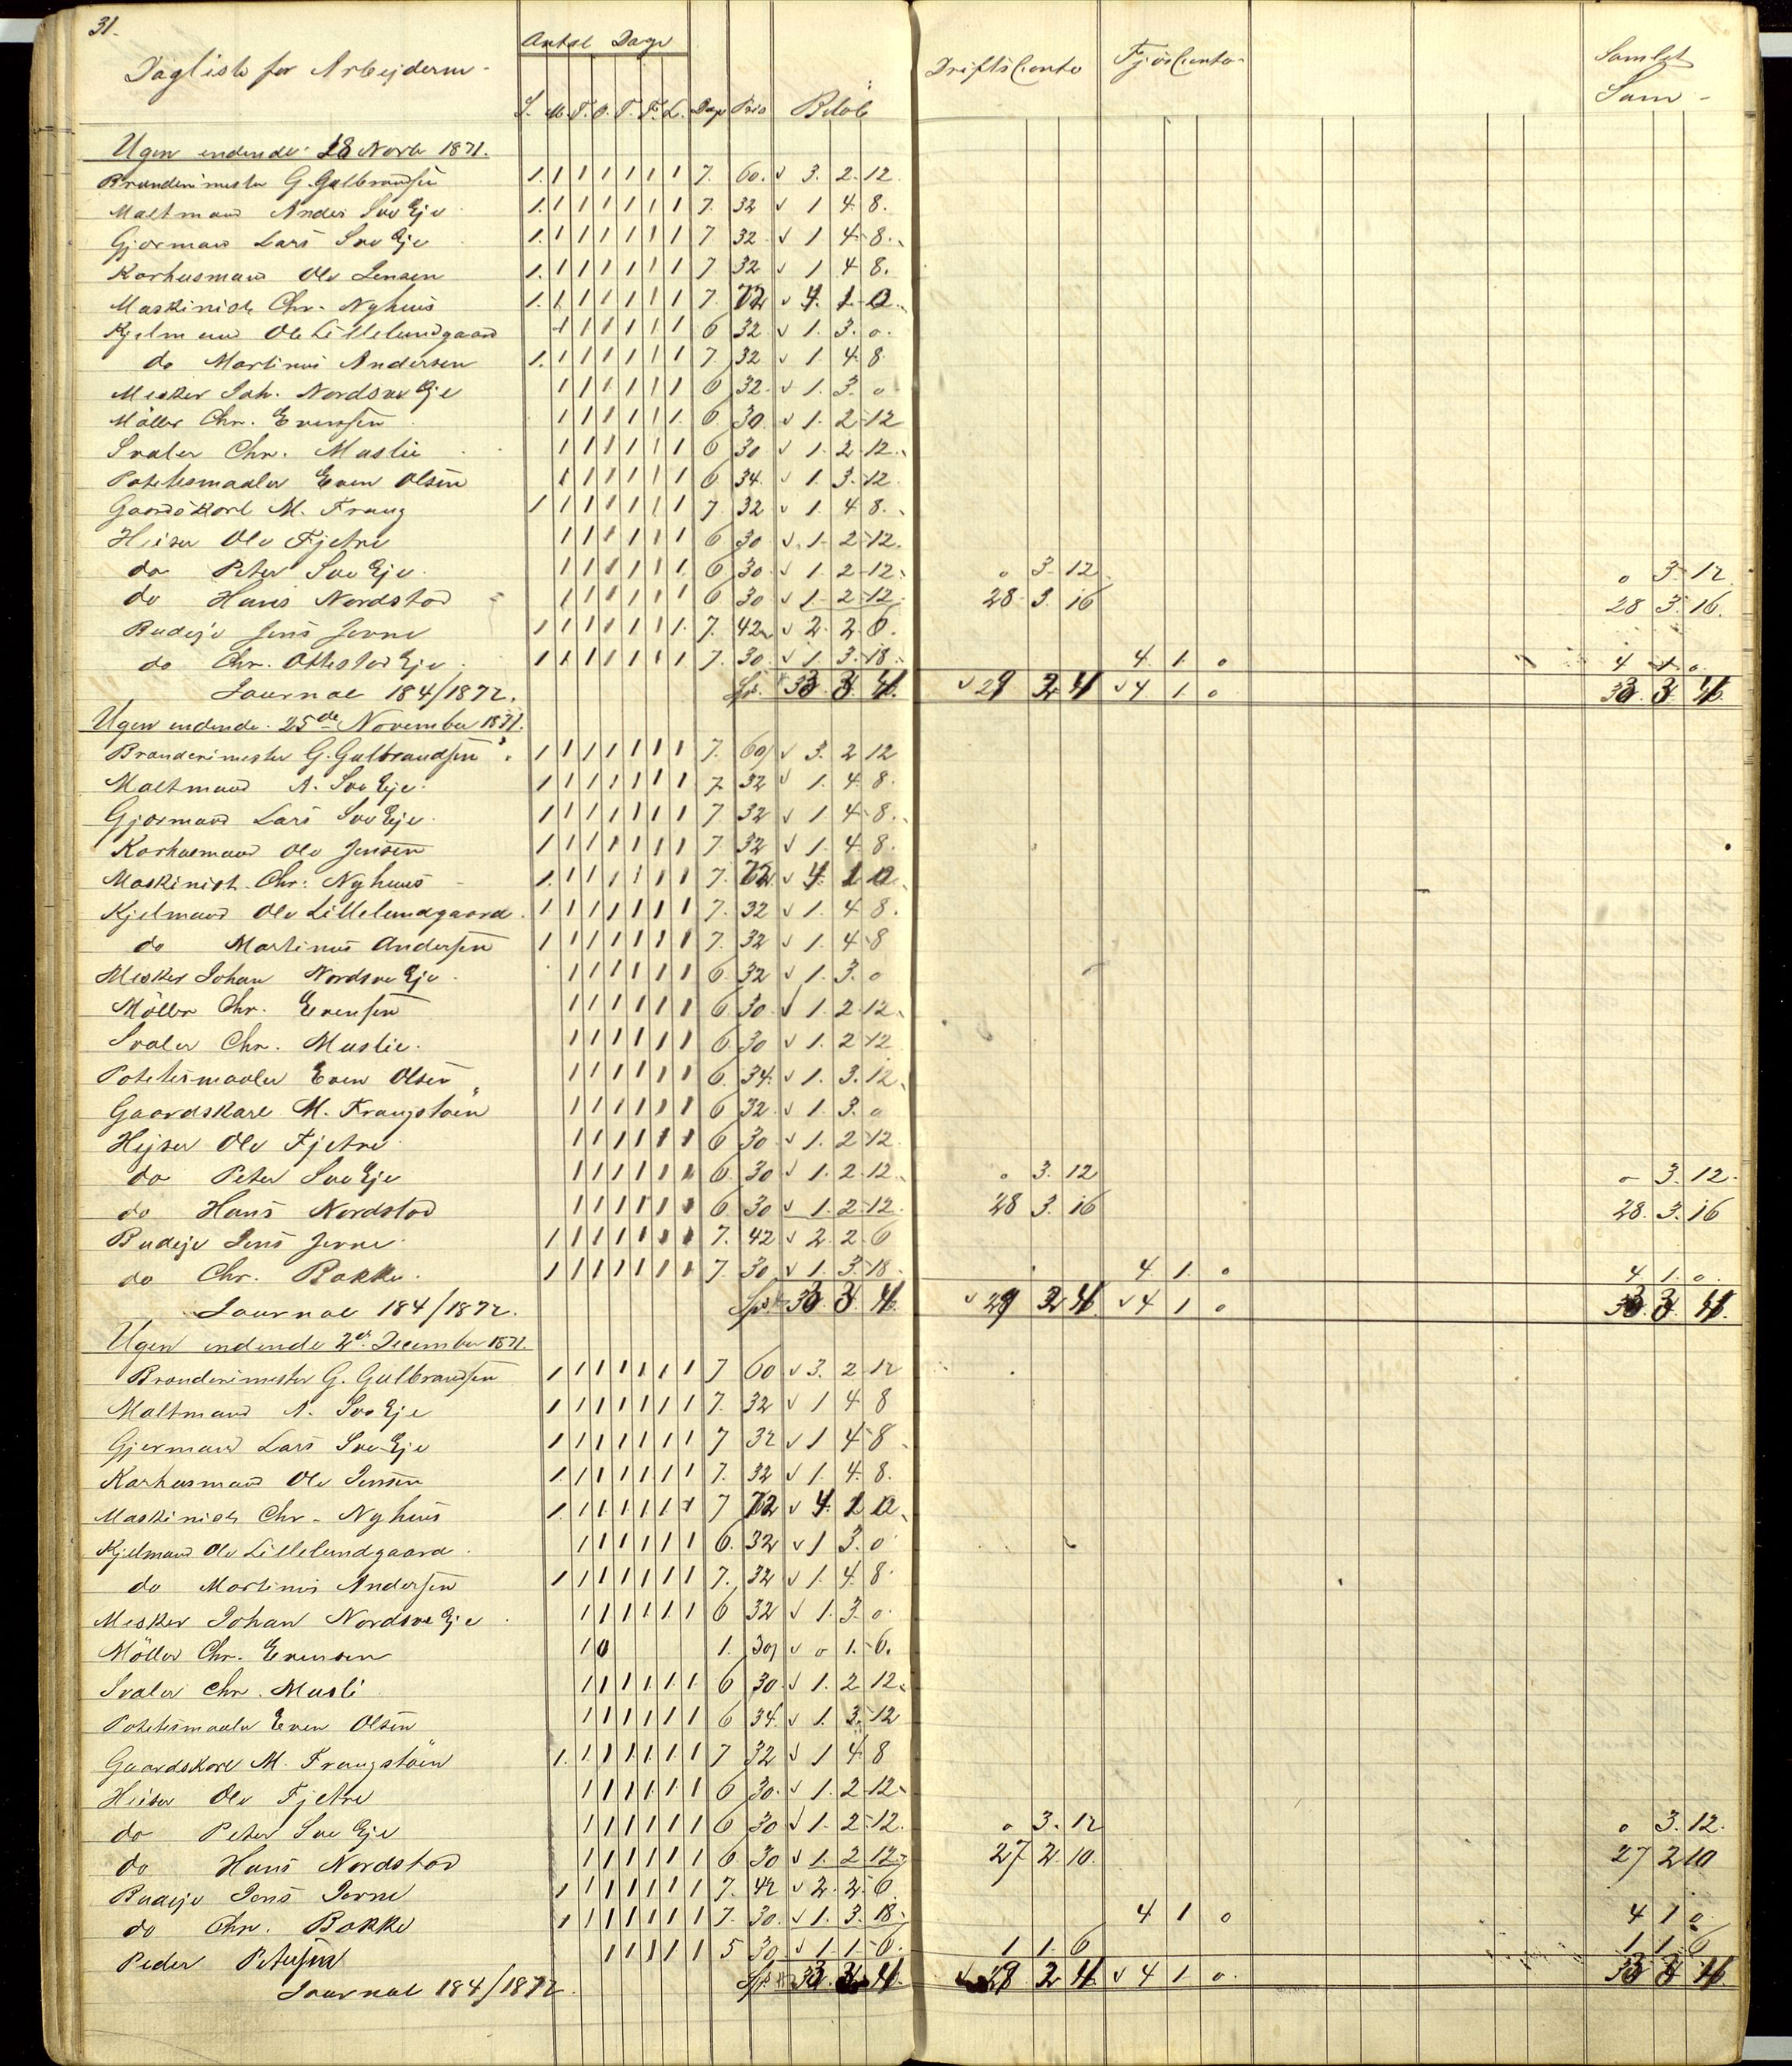 31.
Antal Dage
Dagliste for Arbejderne -
DriftsConto FjösConto
Samlet Sum -
S. M. T. O. T. F. L. Dage Pris Beløb
Ugen endende 18 Novbr 1871.
Brænderimester G. Gulbrandsen 1. 1 1 1 1 1 1 7. 60. v 3. 2. 12
Maltmand Anders Sve Eje 1. 1 1 1 1 1 1 7. 32 v 1 4. 8.
Gjærmand Lars Sve Eje 1. 1 1 1 1 1 1 7 32 v 1 4. 8.
Karhusmand Ole Jensen 1. 1 1 1 1 1 1 7 32 v 1 4 8.
Maskinist Chr. Nyhuus 1. 1 1 1 1 1 1 7. 72 v 4. 1. 0.
Kjelmand Ole Lillelundgaard 1 1 1 1 1 1 6 32 v 1. 3. 0.
do Martinus Andersen 1. 1 1 1 1 1 1 7. 32 v 1 4. 8
Mesker Joh. Nordsve Eje 1 1 1 1 1 1 6 32. v 1. 3. 0
Möller Chr. Evensen 1 1 1 1 1 1. 6. 30. v 1. 2. 12
Svaler Chr. Muslie 1 1 1 1 1 1 6 30 v 1. 2. 12.
Potetesmaaler Even Olsen 1 1 1 1 1 1 6 34. v 1. 3. 12.
Gaardskarl M. Fraug 1 1 1 1 1 1 1 7. 32 v 1. 4 8.
Heiser Ole Fjetre 1 1 1 1 1 1 6 30 v 1. 2. 12.
do Peter Sve Eje 1 1 1 1 1 1. 6 30. v 1. 2. 12. 0 3. 12 0 3. 12
do Hans Nordstad 1 1 1 1 1 1 6 30 v 1. 2. 12. 28. 3. 16 28 3. 16.
Budeje Jens Jevne 1 1 1 1 1 1 1. 7. 42 v 2. 2. 6.
do Chr. Ottestad Eje 1 1 1 1 1 1 1. 7. 30. v 1 3. 18. 4. 1. 0 4 1. 0.
Journal 184/1872. Sp. 33. 3. 4. v 29 2 4 v 4 1 0 33. 3. 4.
Ugen endende 25de November 1871.
Brænderimester G. Gulbrandsen 1 1 1 1 1 1 1 7. 60 v 3. 2 12
Maltmand A. Sve Eje 1 1 1 1 1 1 1 7. 32 v 1. 4. 8.
Gjærmand Lars Sve Eje 1 1 1 1 1 1 1 7. 32 v 1 4. 8.
Karhusmand Ole Jensen 1 1 1 1 1 1 1 7. 32 v 1 4. 8.
Maskinist Chr. Nyhuus 1. 1 1 1 1 1 1 7. 72. v 4. 1 0.
Kjelmand Ole Lillelundgaard. 1 1 1 1 1 1 1 7. 32 v 1. 4 8.
do Martinus Andersen 1 1 1 1 1 1 1 7. 32 v 1. 4. 8
Mesker Johan Nordsve Eje 1 1 1 1 1 1 6. 32 v 1. 3. 0
Möller Chr. Evensen 1 1 1 1 1 1 6 30. v 1. 2. 12.
Svaler Chr. Muslie. 1 1 1 1 1 1 6. 30 v 1. 2. 12
Potetesmaaler Even Olsen 1 1 1 1 1 1 6. 34. v 1. 3. 12.
Gaardskarl M. Fraugstöen 1 1 1 1 1 1 6 32. v 1. 3. 0
Hejser Ole Fjetre 1 1 1 1 1 1 6 30. v 1. 2. 12.
do Peter Sve Eje 1 1 1 1 1 1 6. 30 v 1. 2. 12. 0 3. 12 0 3. 12.
do Hans Nordstad 1 1 1 1 1 1 6 30 v 1. 2. 12. 28 3. 16 28. 3. 16
Budeje Jens Jevne 1 1 1 1 1 1 1 7. 42 v 2. 2. 6
do Chr. Bakke. 1 1 1 1 1 1 1 7. 30. v 1. 3. 18. 4. 1. 0 4 1. 0.
Journal 184/1872. Sp. 33. 3. 4. v 29 2 4 v 4 1 0 33. 3. 4.
Ugen endende 2den December 1871.
Brænderimester G. Gulbrandsen 1 1 1 1 1 1 1 7 60 v 3. 2. 12
Maltmand A. Sve Eje 1 1 1 1 1 1 1 7. 32 v 1 4 8
Gjærmand Lars Sve Eje 1 1 1 1 1 1 1 7 32 v 1 4. 8
Karhusmand Ole Jensen 1 1 1 1 1 1 1 7. 32 v 1. 4. 8.
Maskinist Chr. Nyhuus 1. 1 1 1 1 1 1 7 72 v 4. 1 0.
Kjelmand Ole Lillelundgaard. 1 1 1 1 1 1 6. 32 v 1 3. 0
do Martinus Andersen 1 1 1 1 1 1 1 7. 32 v 1. 4. 8.
Mesker Johan Nordsve Eje 1 1 1 1 1 1 6 32 v 1. 3. 0.
Möller Chr. Evensen 1 0 1. 30 v 0 1. 6.
Svaler Chr. Musli 1 1 1 1 1 1 6 30. v 1. 2. 12.
Potetesmaaler Even Olsen 1 1 1 1 1 1 6 34. v 1. 3. 12
Gaardskarl M. Fraugstöen 1. 1 1 1 1 1 1 7 32 v 1 4. 8
Heiser Ole Fjetre 1 1 1 1 1 1 6 30. v 1. 2. 12.
do Peter Sve Eje 1 1 1 1 1 1 6 30 v 1. 2. 12. 0 3. 12 0 3. 12.
do Hans Nordstad 1 1 1 1 1 1 6 30 v 1. 2 12. 27 2. 10. 27 2 10
Budeje Jens Jevne 1 1 1 1 1 1 1 7. 42 v 2. 2. 6
do Chr. Bakke 1 1 1 1 1 1 1 7. 30. v 1. 3. 18. 4 1 0 4 1 0
Peder Petersen 1 1 1 1 1 5 30. v 1. 1. 6. 1 1. 6 1 1. 6
Journal 184/1872. Sp. 33. 3. 4. 29 2 4 v 4 1 0. 33 3 4